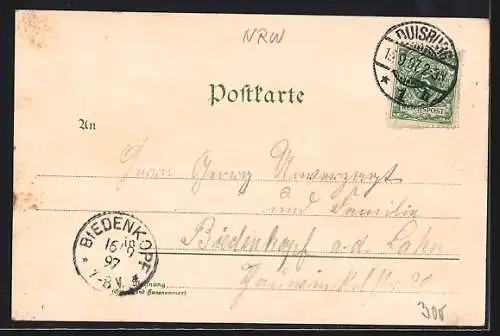 NRW
DUISBURG
9 97 2-3N
* 1 h
REICHSPOST
Postkarte
An
Herrn Georg Unverzagt
und Familie
BIEDENKOPF
16 9
97
7-8 V. *
Biedenkopf a.d. Lahn
Wohnung
(Straße und Hausnummer)
300